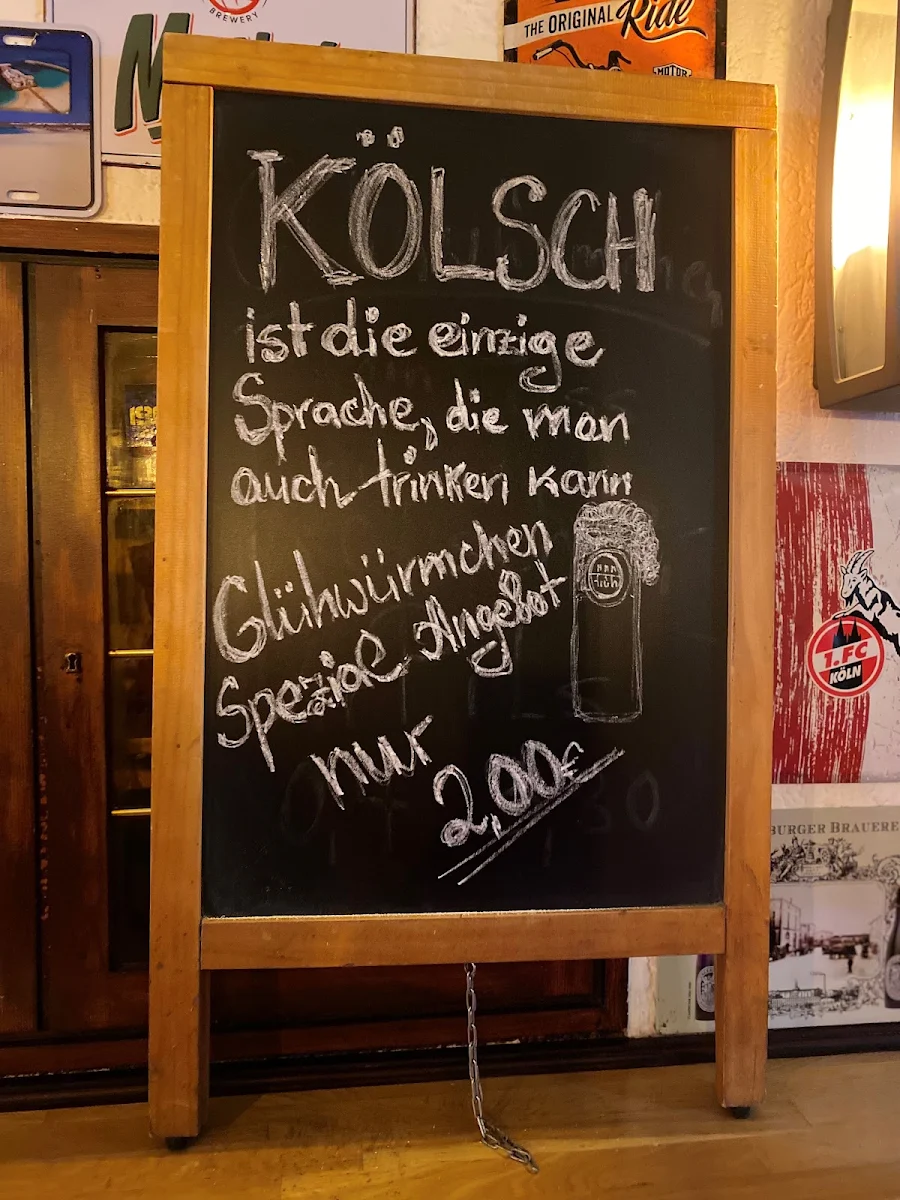 BREWERY
THE ORIGINAL Ride
MOTOR
KÖLSCH
ist die einzige
Sprache, die man
auch trinken kann
Glühwürmchen
Spezial Angebot
nur
2,00€
Früh
1.FC
KÖLN
BURGER BRAUERE